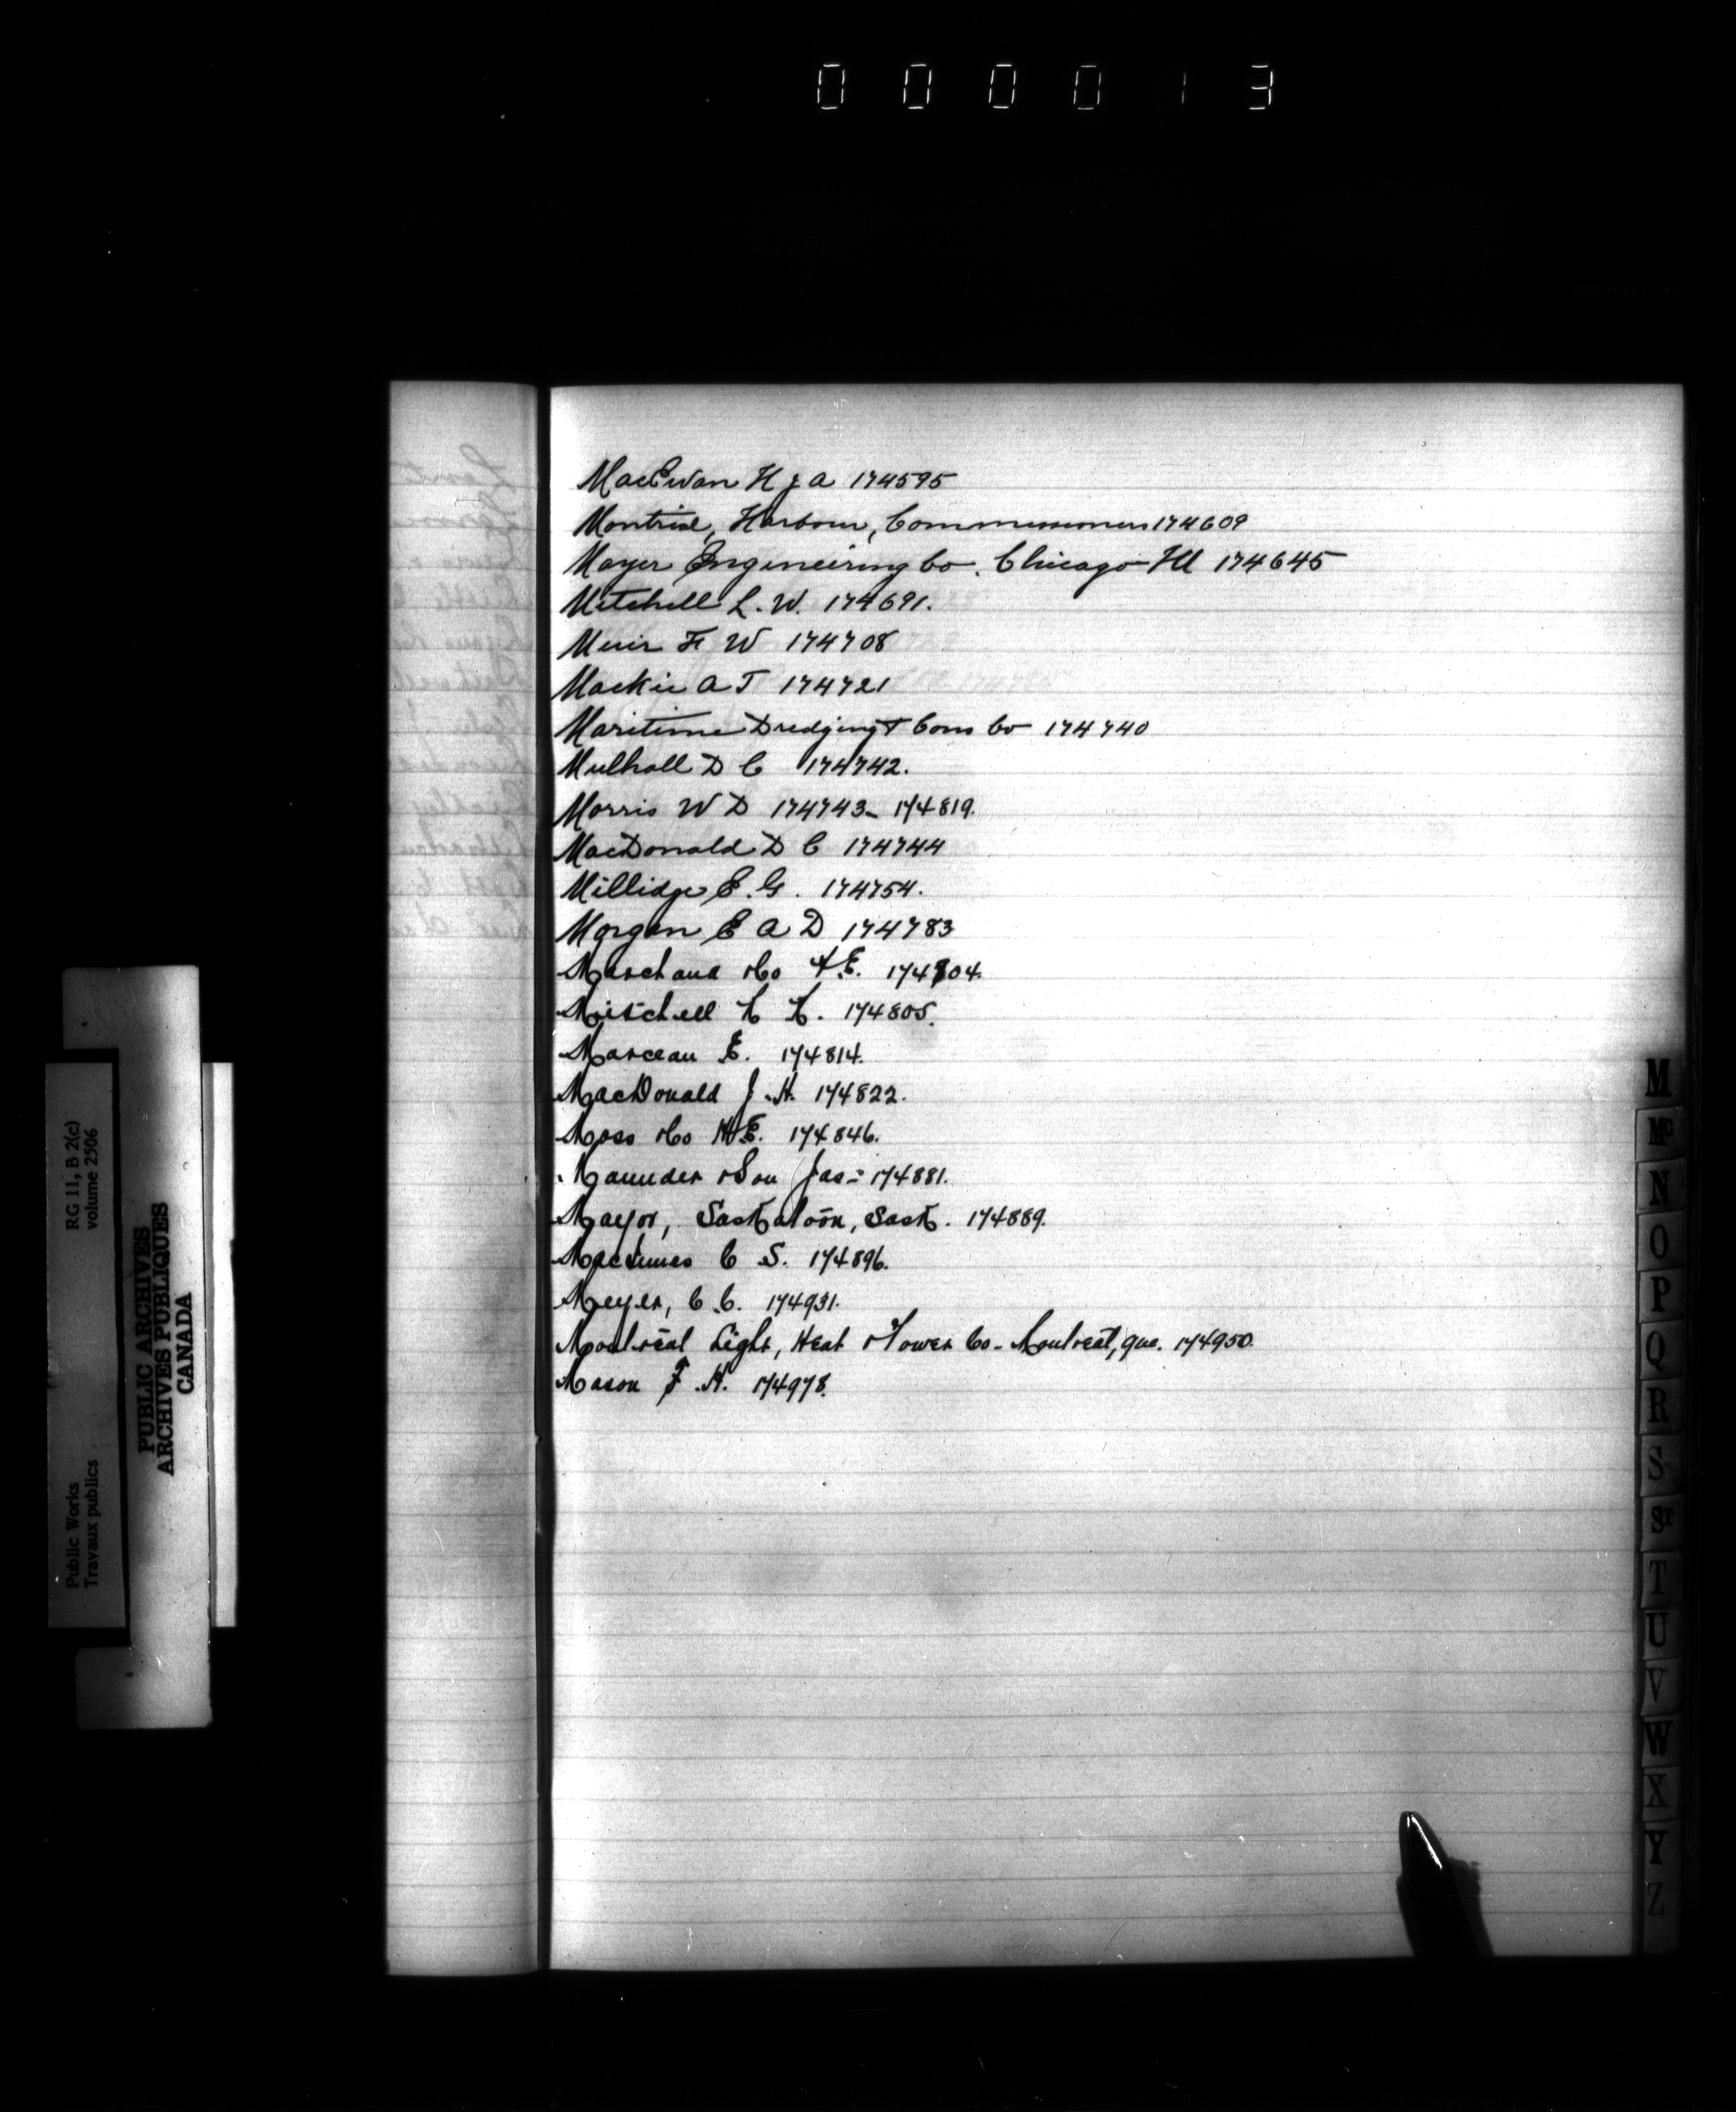 000013
MacEwan H J A 174595
Montreal, Harbour, Commissioners 174609
Mayer Engineering Co. Chicago Ill 174645
Mitchell L. W. 174691.
Muir F W 174708
Mackie A T 174721
Maritime Dredging & Cons Co 174740
Mulhall D C 174742.
Morris W D 174743- 174819.
MacDonald D C 174744
Millidge E. G. 174754.
Morgan E A D 174783
Marchand &Co 174804.
Mitchell 174805.
Marceau E. 174814.
MacDonald J. H. 174822.
Moss &Co H E. 174846.
Maunder &Son Jas- 174881.
Mayor, Saskatoon, Sask. 174889.
MacInnes C S. 174896.
Meyer, C. C. 174931.
Montreal Light, Heat &Power Co- Montreal, Que. 174950.
Mason F. H. 174978.
M
Mc
N
O
P
Q
R
S
ST
T
U
V
W
X
Y
Z
Public Works
Travaux publics
RG 11, B 2(c)
volume 2506
PUBLIC ARCHIVES
ARCHIVES PUBLIQUES
CANADA